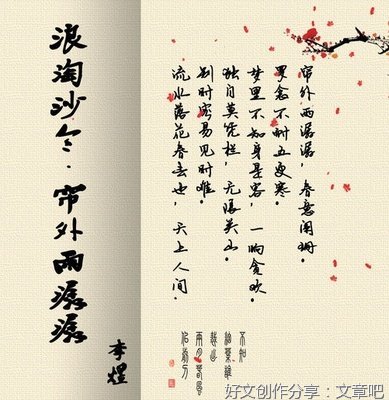 浪淘沙令·帘外雨潺潺
李煜
帘外雨潺潺,春意阑珊。
罗衾不耐五更寒。
梦里不知身是客,一晌贪欢。
独自莫凭栏,无限关山。
别时容易见时难。
流水落花春去也,天上人间。
好文创作分享:文章吧